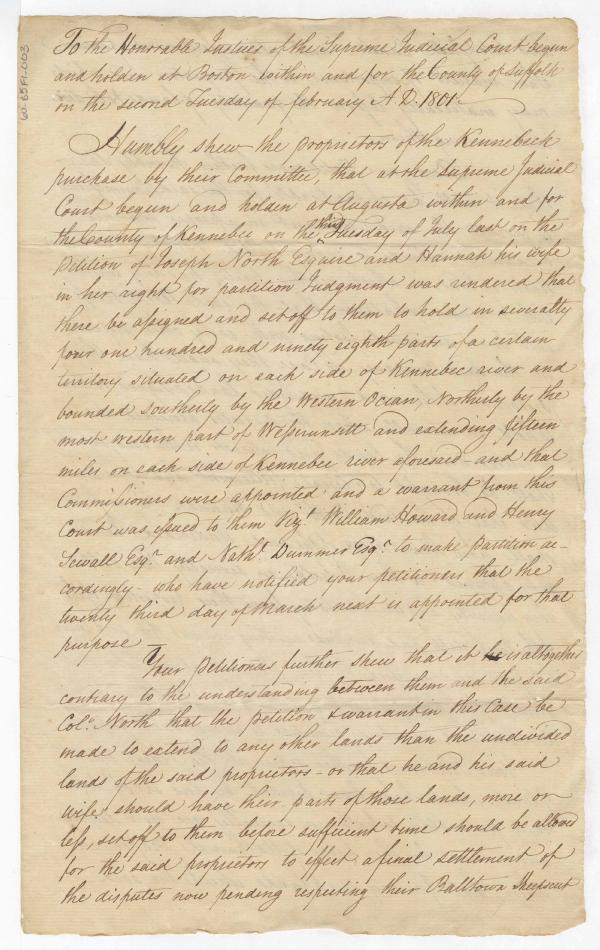 To the Honorable Justices of the Supreme Judicial Court begun
and holden at Boston within and for the County of Suffolk
on the second Tuesday of february A.D. 1801.
Humbly shew the proprietors of the Kennebeck
purchase by their Committee, that at the Supreme Judicial
Court begun and holden at Augusta within and for
the County of Kennebec on the third Tuesday of July last on the
Petition of Joseph North Esquire and Hannah his wife
in her right for partition Judgment was rendered that
there be assigned and set off to them to hold in severalty
four one hundred and ninety eighth parts of a certain
territory situated on each side of Kennebec river and
bounded southerly by the Western Ocean, Northerly by the
most western part of Wesserunsett and extending fifteen
miles on each side of Kennebec river aforesaid - and that
Commissioners were appointed and a warrant from this
Court was issued to them Vizt William Howard and Henry
Sewall Esqr. and Nathl. Dummer Esqr. to make partition ac-
cordingly - who have notified your petitioners that the
twenty third day of March next is appointed for that
purpose
Your Petitioners further shew that it is altogether
contrary to the understanding between them and the said
Colo. North that the petition & warrant in this Case be
made to extend to any other lands than the undivided
lands of the said proprietors - or that he and his said
wife should have their parts of those lands, more or
less, set off to them before sufficient time should be allowed
for the said proprietors to effect a final settlement of
the disputes now pending respecting their Balltown Sheepscut